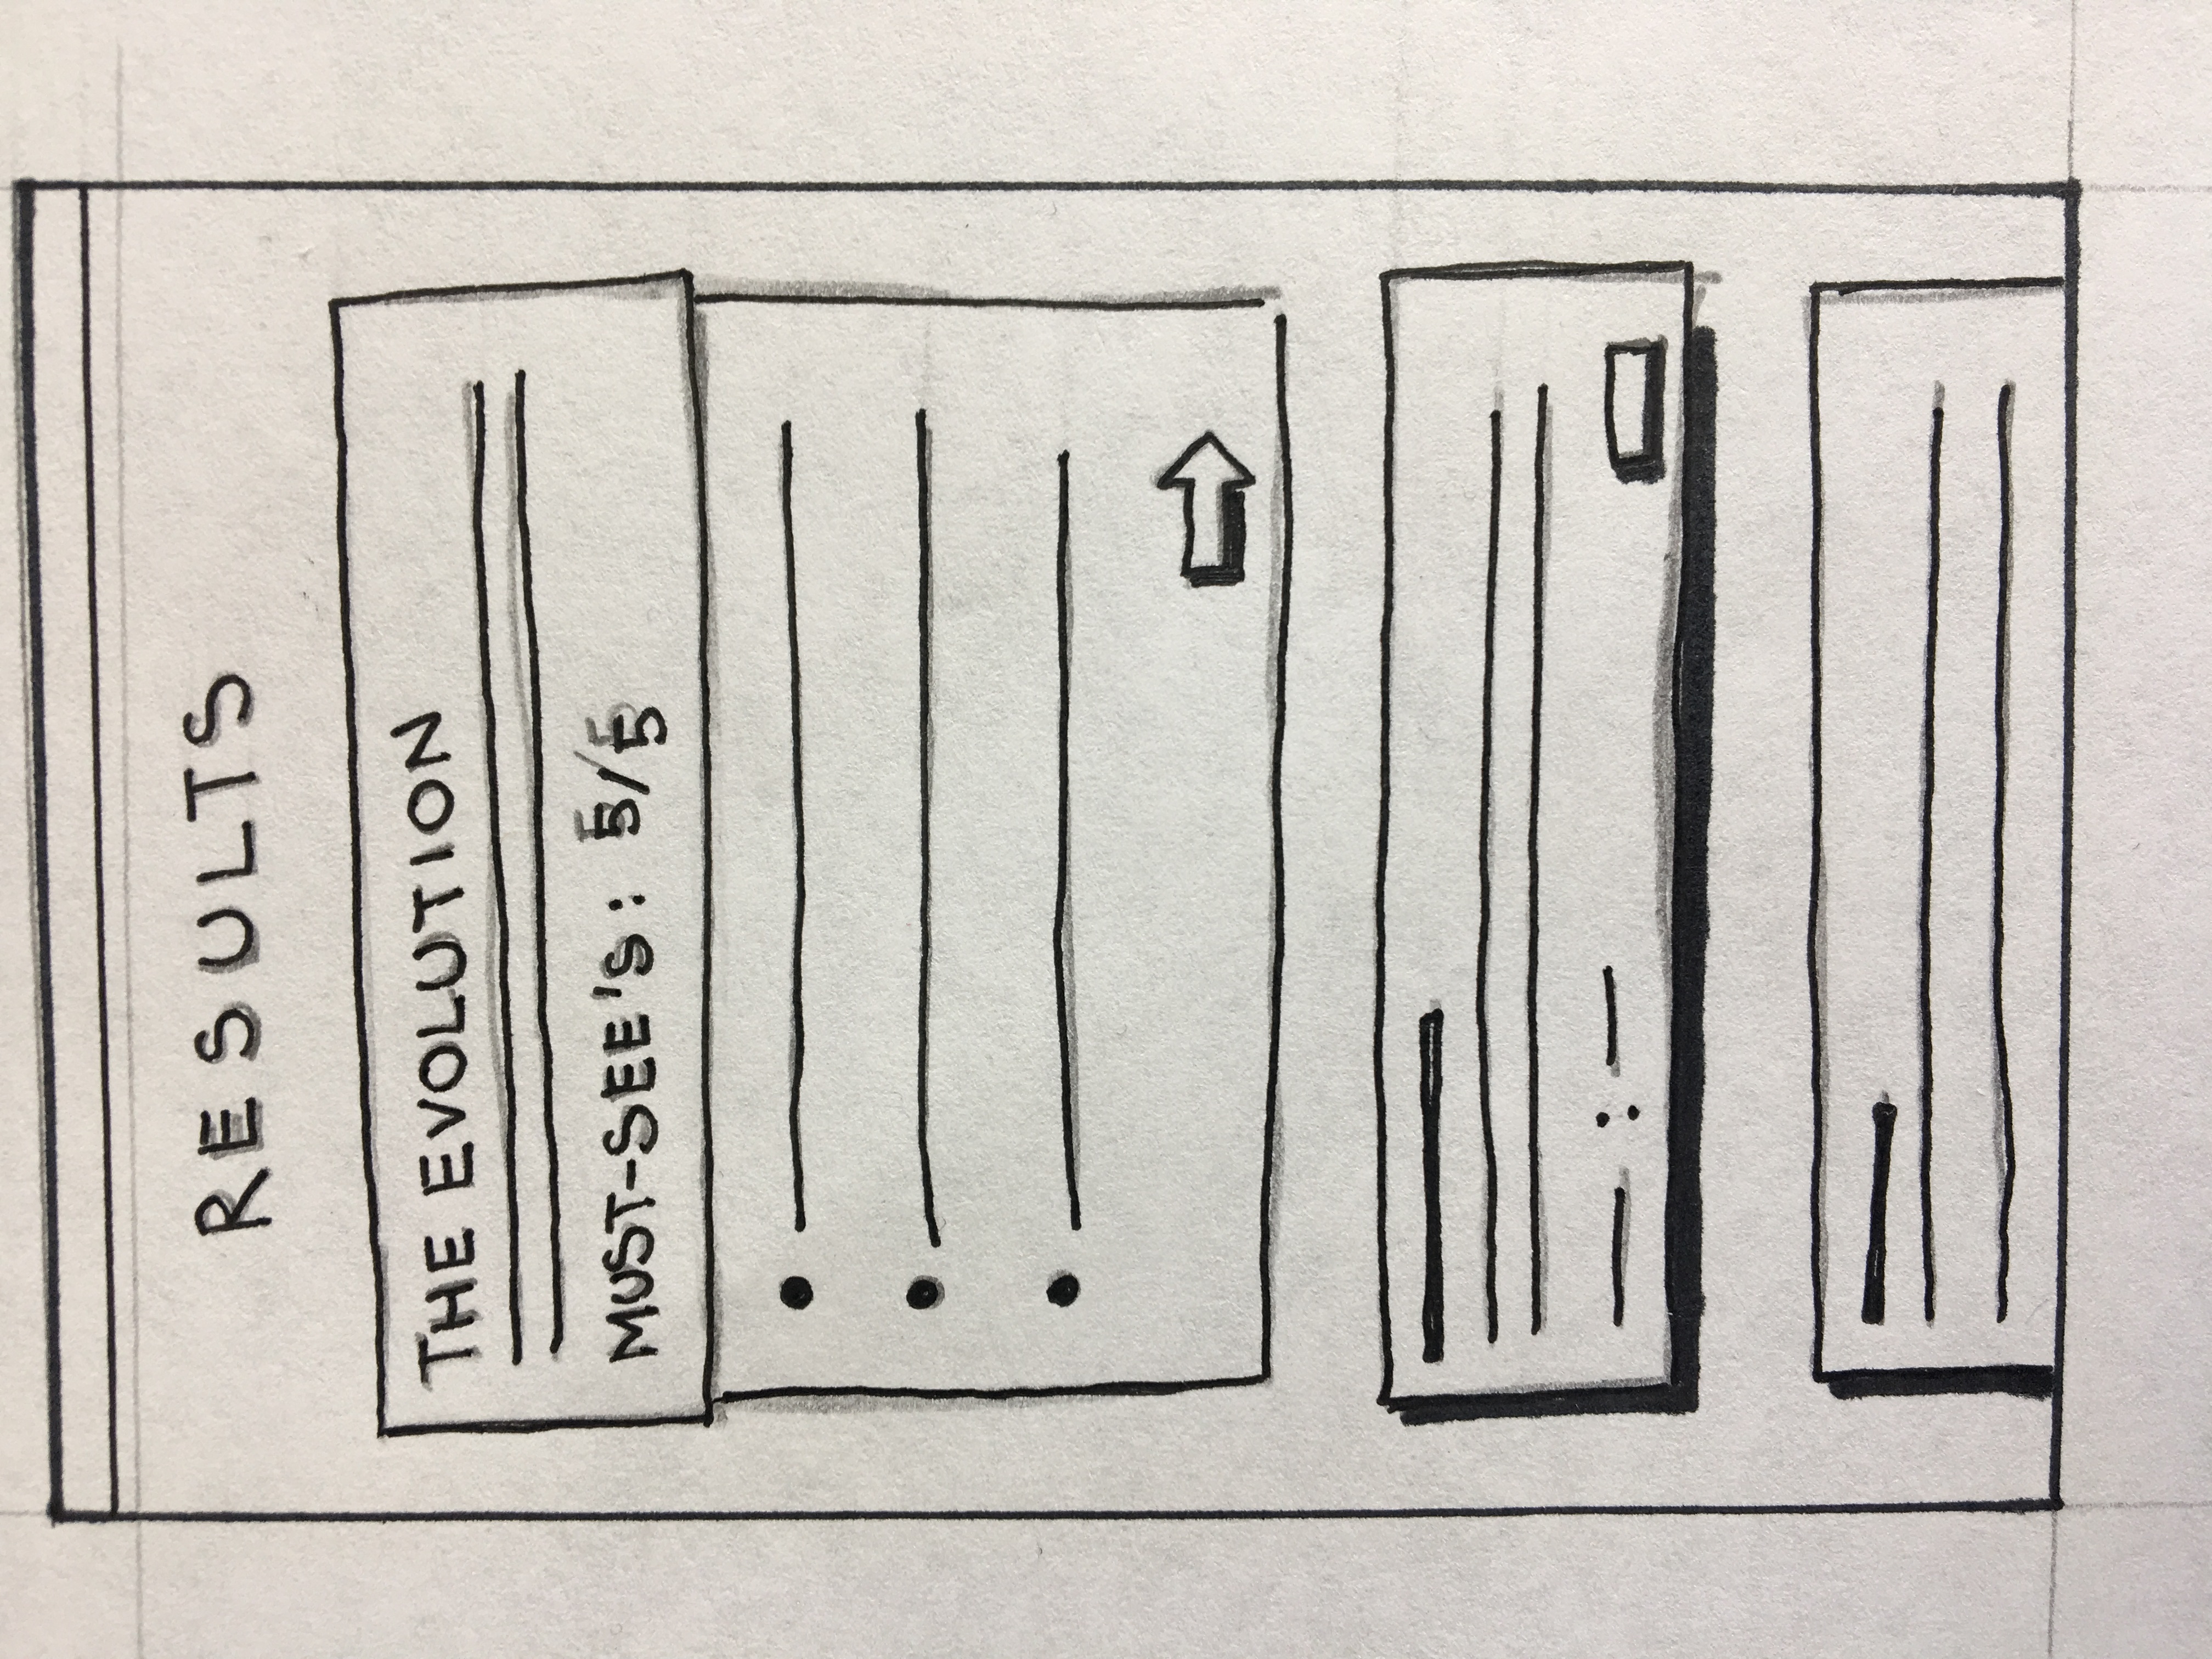 RESULTS
THE EVOLUTION
MUST-SEE'S: 5/5